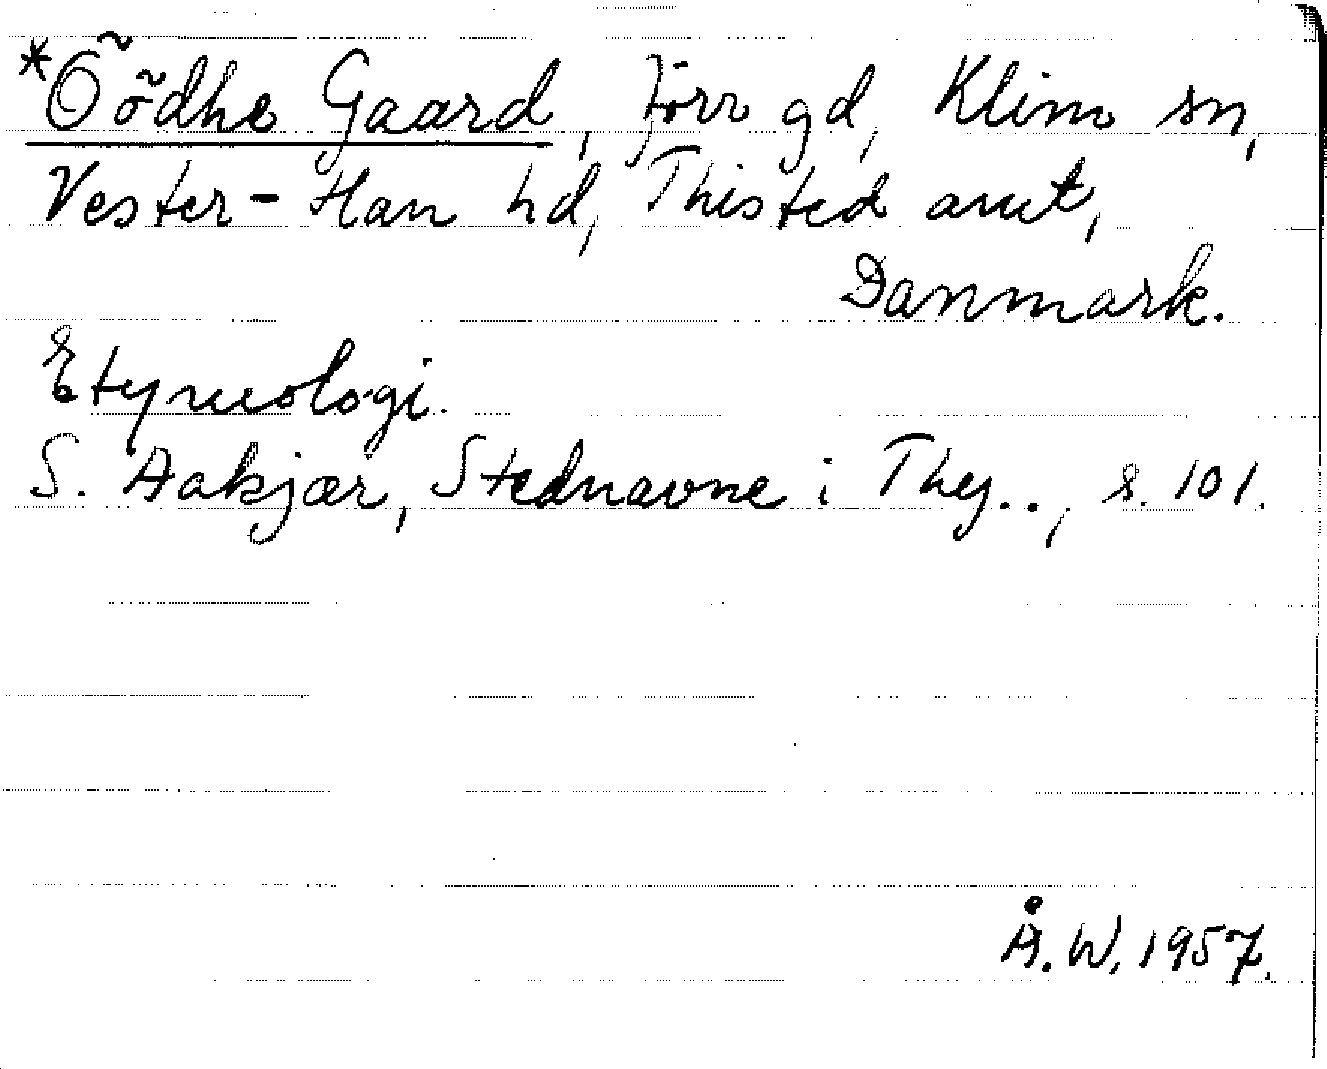 *Õõdhe Gaard, förr gd, Klim sn,
Vester-Han hd, Thisted amt,
Danmark.
Etymologi.
S. Aakjær, Stednavne i Thy.., s. 101.
Å. W. 1957.